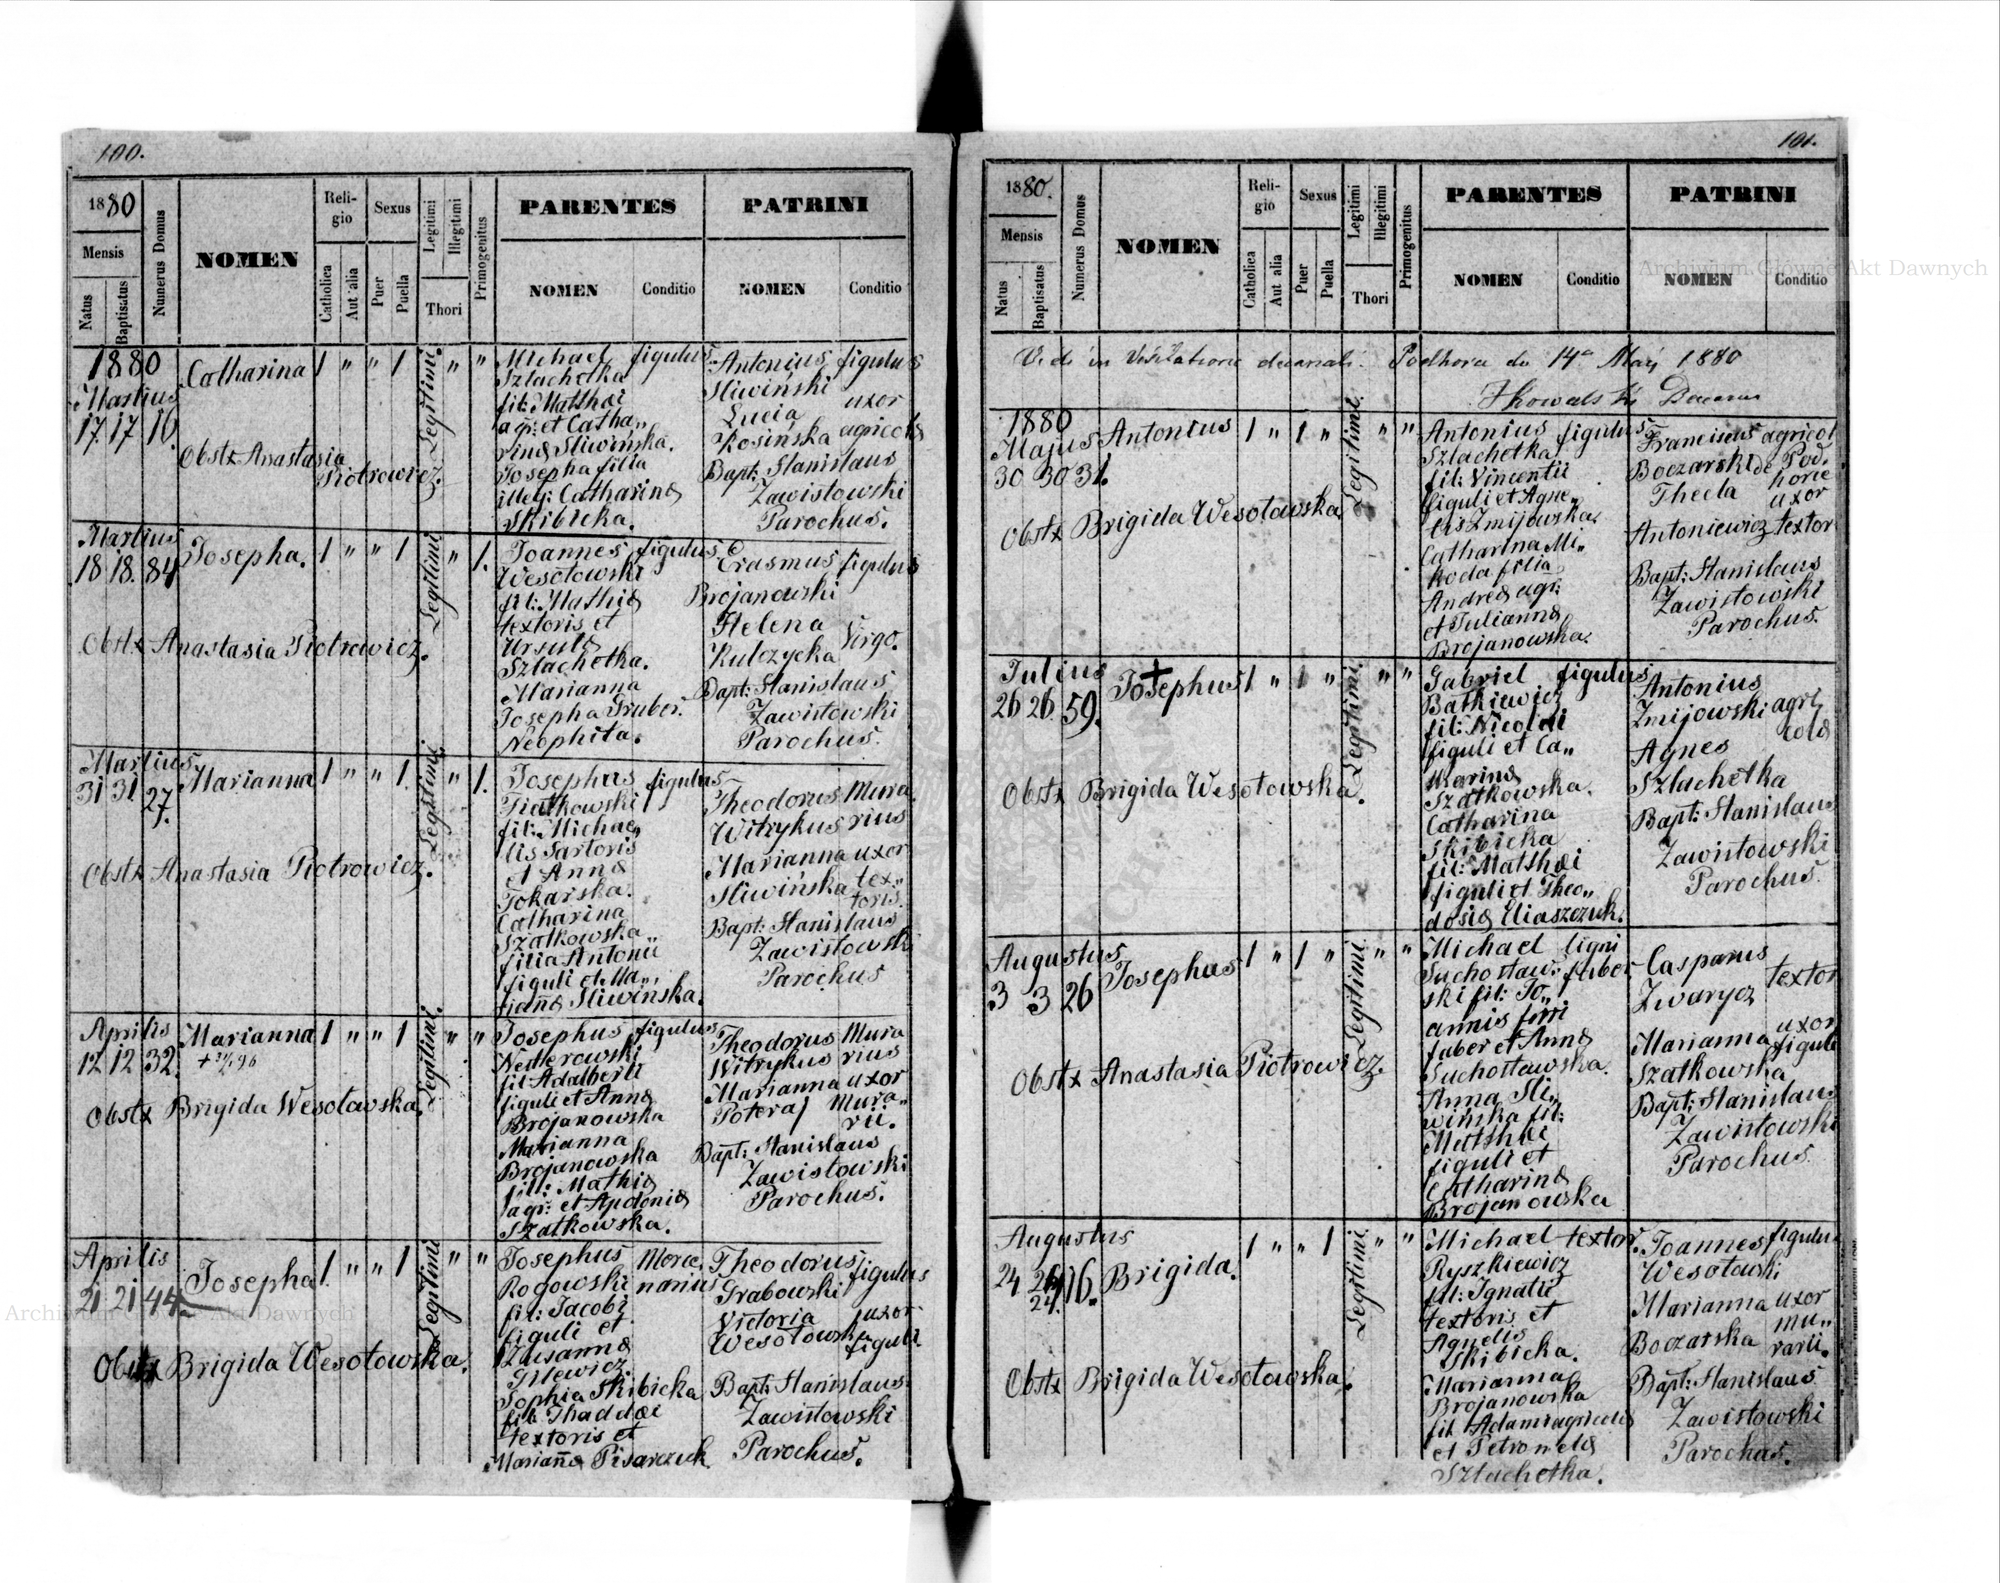 100.
1880
Mensis
Natus
Baptisatus
Numerus Domus
NOMEN
Reli-
gio
Catholica
Aut alia
Sexus
Puer
Puella
Legitimi
Illegitimi
Thori
Primogenitus
PARENTES
NOMEN
Conditio
PATRINI
NOMEN
Conditio
1880
Martius
17. 17 16.
Catharina
1 " " 1
Legitimi.
" "
Obstx Anastasia
Piotrowicz.
Michael figulus
Szlachetka
fil: Matthæi
agr: et Catha„
rinæ Sliwińska.
Josepha filia
illeg: Catharinæ
Skibicka.
Antonius figulus
Sliwiński
Lucia uxor
Kosińska agricolæ
Bapt: Stanislaus
Zawistowski
Parochus.
Martius
18 18. 84
Josepha.
1 " " 1
Legitimi
" 1.
Obstx Anastasia Piotrowicz.
Joannes figulus
Wesołowski
fil: Mathiæ
textoris et
Ursulæ
Szlachetka.
Marianna
Josepha Gruber.
Neophita.
Erasmus figulus
Brojanowski
Helena
Kulczycka Virgo.
Bapt: Stanislaus
Zawistowski
Parochus.
Martius
31 31. 27.
Marianna
1 " " 1.
Legitimi.
" 1.
Obstx Anastasia Piotrowicz.
Josephus figulus
Piatkowski
fil: Michae„
lis Sartoris
et Annæ
Tokarska.
Catharina
Szatkowska„
filia Antonii
figuli et Ma„
riannæ Sliwińska.
Theodorus Mura
Witrykus rius
Marianna uxor
Sliwińska tex„
toris.
Bapt: Stanislaus
Zawistowski
Parochus
Aprilis
12 12 32.
Marianna
1 " " 1
Legitimi.
" "
Obstx Brigida Wesołowska.
Josephus figulus
fil: Adalberti
figuli et Annæ
Brojanowska
Marianna
Brojanowska
fill: Mathiæ
agr: et Apoloniæ
Szatkowska.
Theodorus Mura
Witrykus rius
Marianna uxor
Poteraj Mura„
rii.
Bapt: Stanislaus
Zawistowski
Parochus.
Aprilis
21 21 44
Josepha
1 " " 1
Legitimi
" "
Obstx Brigida Wesołowska.
Josephus Merce,
Rogowski narius
fil: Jacobi
figuli et
Zusannæ
Gilewicz.
Sophia Skibicka
fil: Thaddæi
textoris et
Mariannæ Pisarczuk.
Theodorus figulus
Grabowski
Victoria uxor
Wesołowska figuli.
Bapt: Stanislaus
Zawistowski
Parochus.
101.
1880.
Mensis
Natus
Baptisatus
Numerus Domus
NOMEN
Reli-
gio
Catholica
Aut alia
Sexus
Puer
Puella
Legitimi
Illegitimi
Thori
Primogenitus
PARENTES
NOMEN
Conditio
PATRINI
NOMEN
Conditio
Vidi in Visitatione decanali. Podhorce die 14a Maij 1880
Decanus
1880
Majus
30 30 31.
Antonius
1 " 1 "
Legitimi.
" "
Obstx Brigida Wesołowska.
Antonius figulus
Szlachetka
fil: Vincentii
figuli et Agne„
tis Zmijowska.
Catharina Mi„
koda filia
Andreæ agr:
et Juliannæ
Brojanowska.
Franciscus agricol
Boczarski de Pod„
Thecla horce
uxor
Antoniewicz textor
Bapt: Stanislaus
Zawistowski
Parochus.
Julius
26 26. 59.
Josephus
1 " 1 "
Legitimi.
" "
Obstx Brigida Wesołowska.
Gabriel figulus
Batkiewicz
fil: Nicolai
figuli et Ca„
tharinæ
Szatkowska.
Catharina
Skibicka
fil: Matthæi
figuli et Theo„
dosiæ Eliaszczuk.
Antonius
Zmijowski agri
colæ
Agnes
Szlachetka
Bapt: Stanislaus
Zawistowski
Parochus.
Augustus
3 3 26
Josephus
1 " 1 "
Legitimi.
" "
Obstx Anastasia Piotrowicz.
Michael ligni
Suchosław„ faber
ski fil: Jo„
annis ferri
faber et Annæ
Suchosławska.
Anna Sli„
wińska fil:
Matthæi
figuli et
Catharinæ
Brojanowska
Casparus
Zwarycz textor
Marianna uxor
Szatkowska figuli
Bapt: Stanislaus
Zawistowski
Parochus.
Augustus
24 24 16.
24.
Brigida.
1 " " 1
Legitimi.
" "
Obstx Brigida Wesołowska.
Michael textor.
Ryszkiewicz
fil: Ignatii
textoris et
Agnetis
Skibicka.
Marianna
Brojanowska
fil: Adami agricolæ
et Petronelæ
Szlachetka.
Joannes figulus
Wesołowski
Marianna uxor
Boczarska mu„
rarii.
Bapt: Stanislaus
Zawistowski
Parochus.
Archiwum Główne Akt Dawnych
Archiwum Główne Akt Dawnych